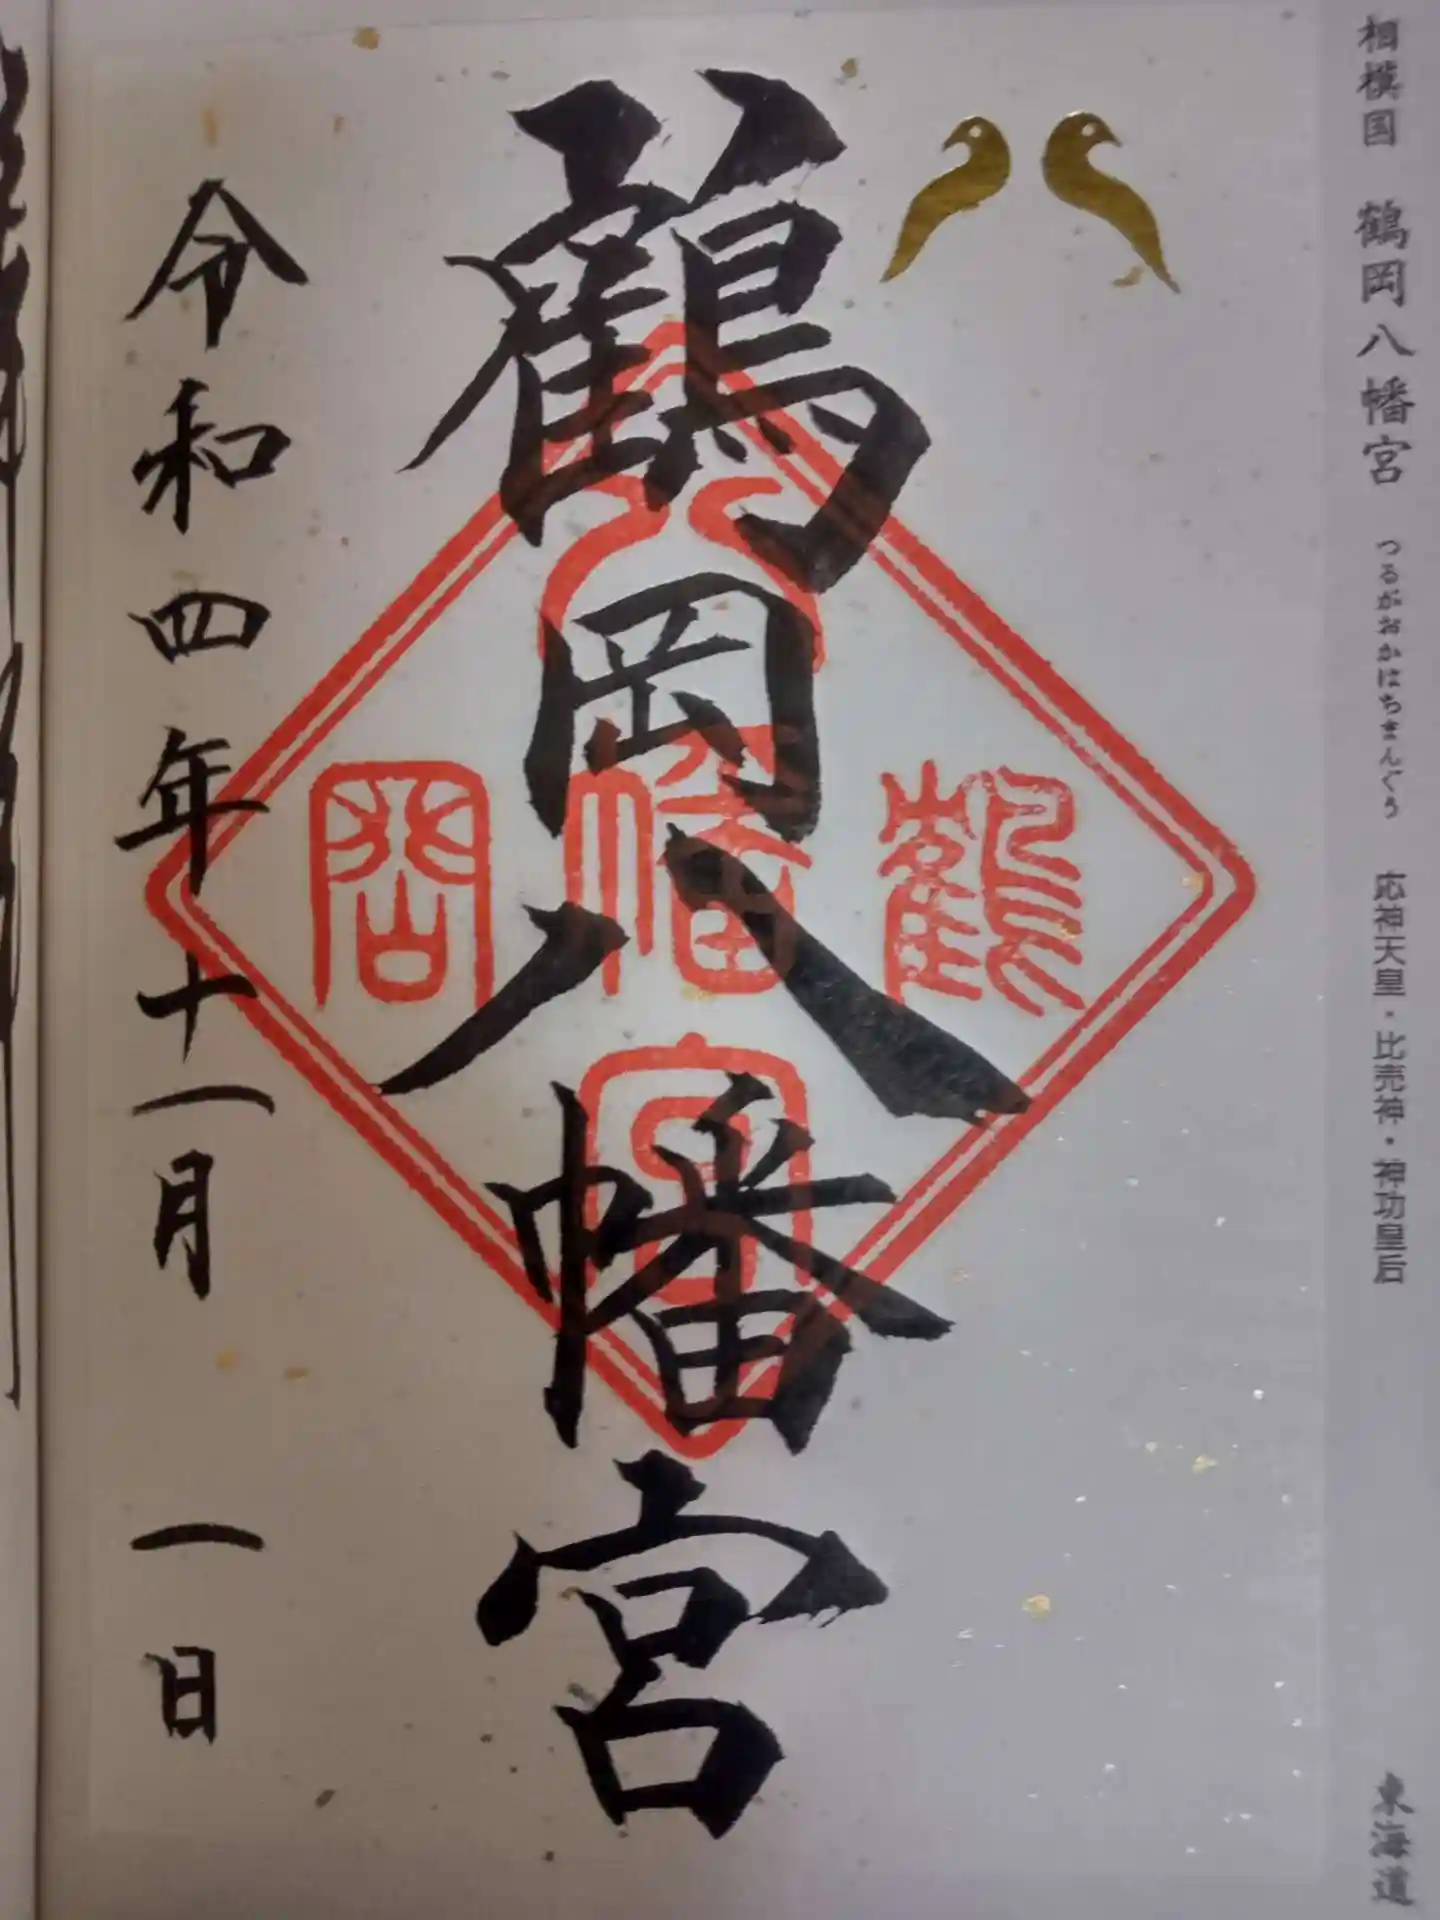 相模国 鶴岡八幡宮 つるがおかはちまんぐう 応神天皇・比売神・神功皇后 東海道
鶴岡八幡宮
鶴岡八幡宮
令和四年十一月一日